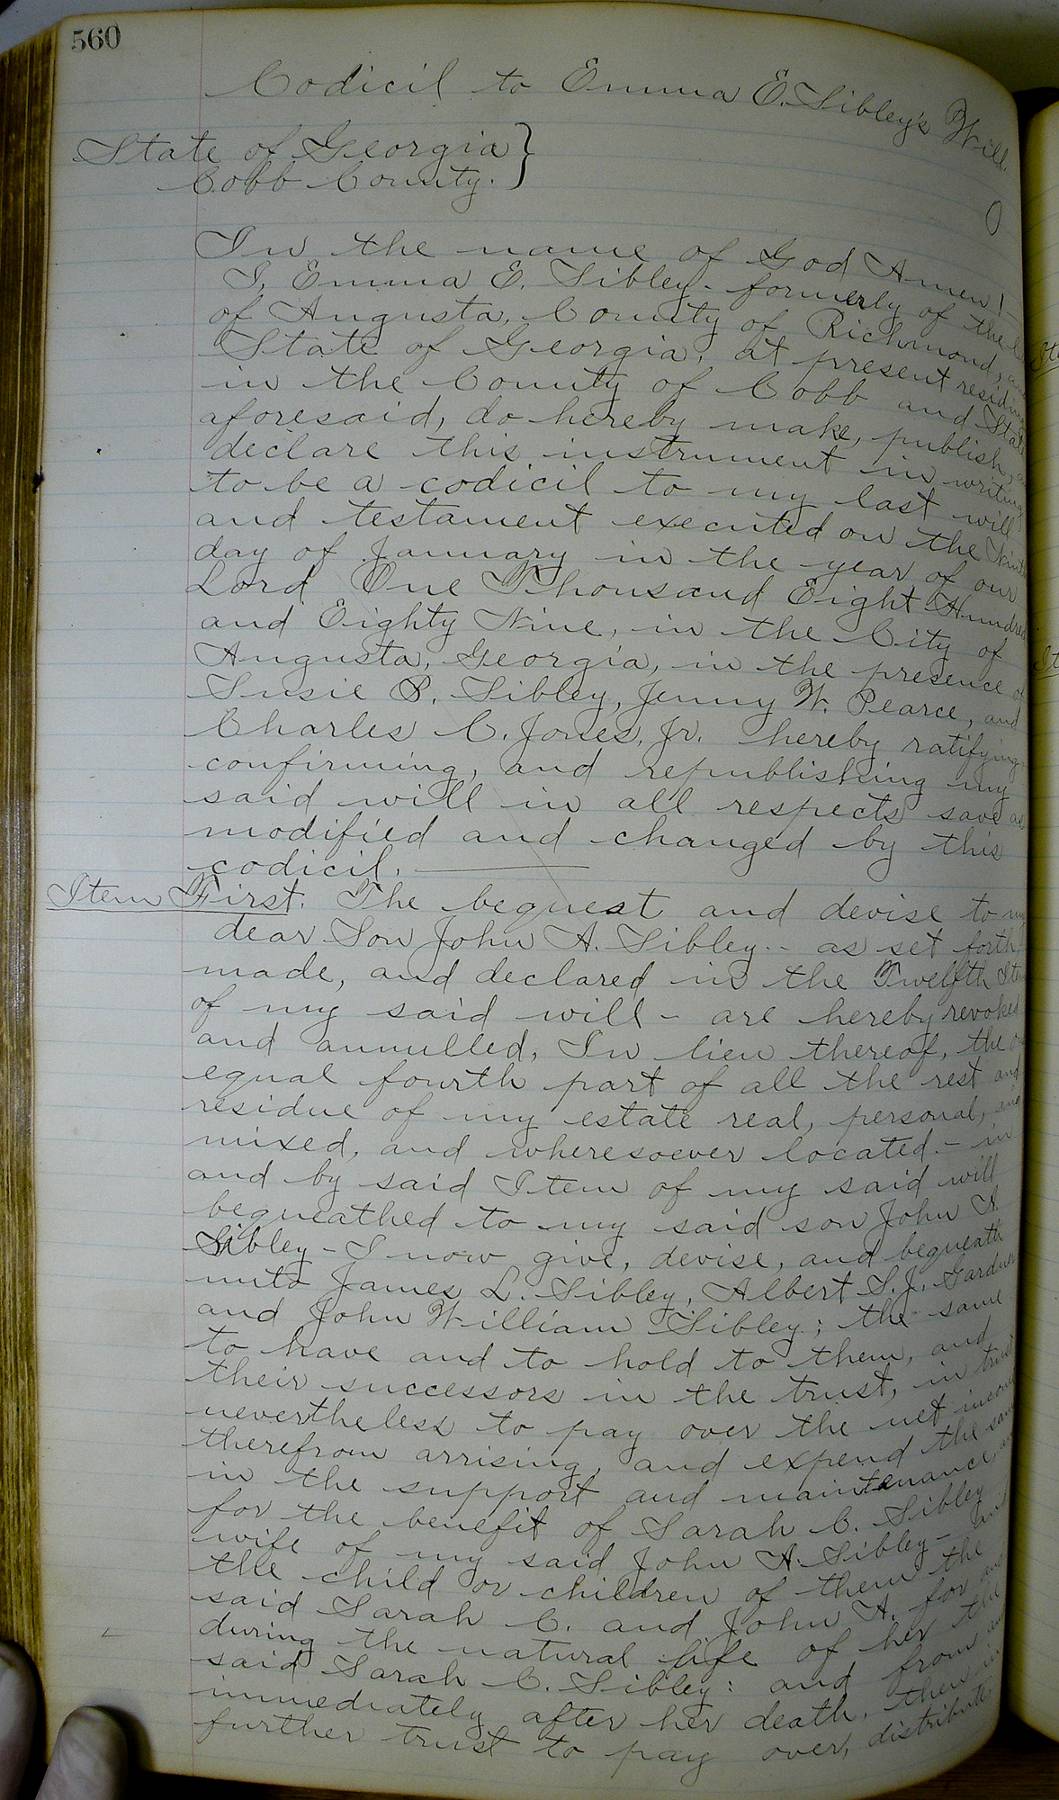 560
Codicil to Emma E. Sibley's Will
State of Georgia }
Cobb County. }
In the name of God Amen!
I, Emma E. Sibley - formerly of the
of Augusta, County of Richmond, and
State of Georgia, at present residing
in the County of Cobb and State
aforesaid, do hereby make, publish, and
declare this instrument in writing
to be a codicil to my last will
and testament executed on the Ninth
day of January in the year of our
Lord One Thousand Eight Hundred
and Eighty Nine, in the City of
Augusta, Georgia, in the presence of
Susie R. Sibley, Jenny W. Pearce, and
Charles C. Jones, Jr. hereby ratifying
confirming, and republishing my
said will in all respects save as
modified and changed by this
codicil.
Item First. The bequest and devise to my
dear Son John A. Sibley - as set forth
made, and declared in the Twelfth Item
of my said will - are hereby revoked
and annulled. In lieu thereof, the
equal fourth part of all the rest and
residue of my estate real, personal, and
mixed, and wheresoever located - in
and by said Item of my said will
bequeathed to my said son John A.
Sibley - I now give, devise, and bequeath
unto James L. Sibley, Albert S. J. Gardner
and John William Sibley; the same
to have and to hold to them, and
their successors in the trust, in trust
nevertheless to pay over the net income
therefrom arrising, and expend the same
in the support and maintenance, and
for the benefit of Sarah C. Sibley
wife of my said John A. Sibley - and
the child or children of them the
said Sarah C. and John A. for and
during the natural life of her the
said Sarah C. Sibley: and from and
immediately after her death, then in
further trust to pay over, distribute,